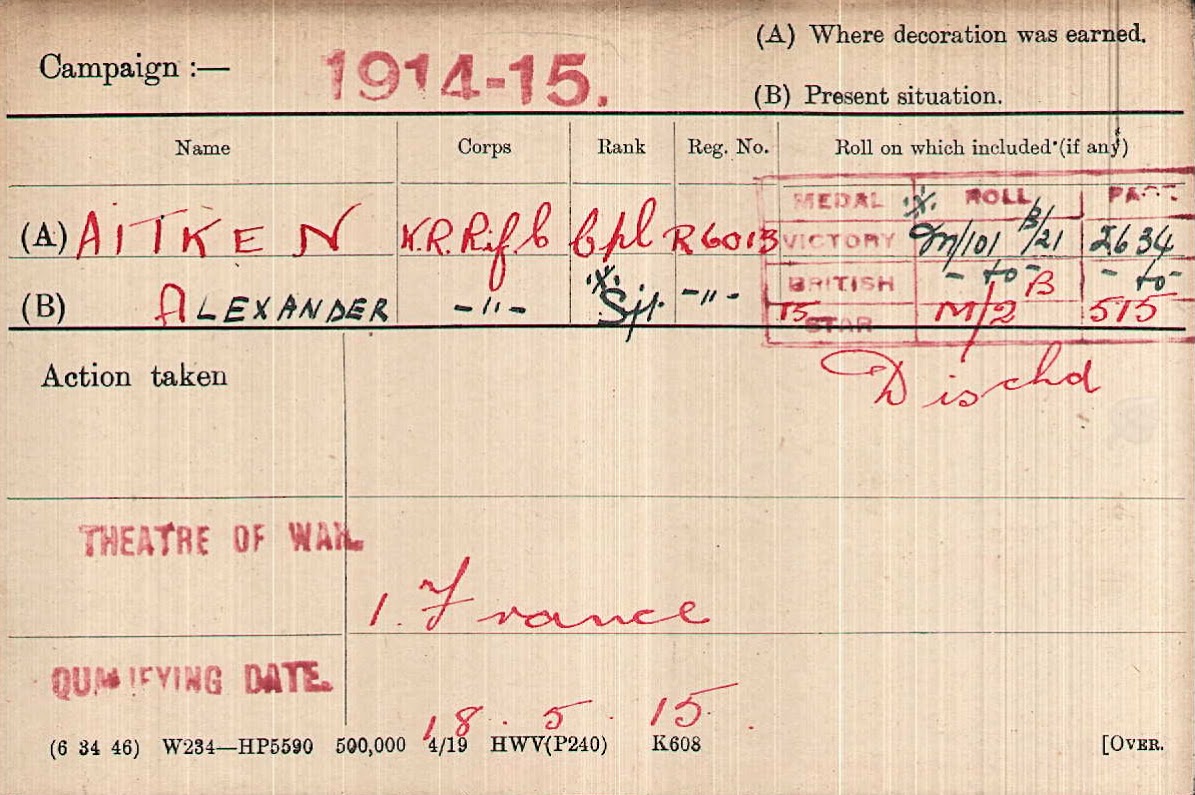 Campaign :— 1914-15. (A) Where decoration was earned.
(B) Present situation.
Name Corps Rank Reg. No. Roll on which included (if any)
MEDAL ROLL PAGE
(A) AITKEN K.R.Rif.C Cpl R6013 VICTORY M/101 B/21 2634
BRITISH -to- -to-
(B) ALEXANDER -"- Sjt -"- 15 STAR M/2 B 515
Action taken Dischd
THEATRE OF WAR.
1. France
QUALIFYING DATE.
18. 5. 15.
(6 34 46) W234—HP5590 500,000 4/19 HWV(P240) K608 [OVER.